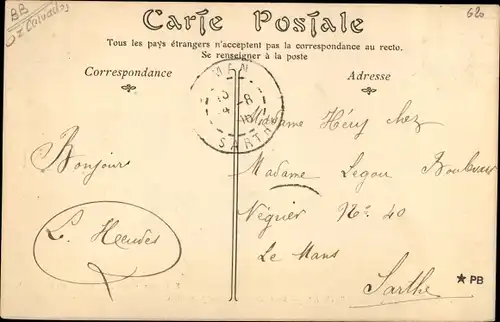 BB
Calvados
620
Carte Postale
Tous les pays étrangers n'acceptent pas la correspondance au recto.
Se renseigner à la poste
Correspondance
Adresse
SARTHE
Madame Héry chez
Bonjour
Madame Legou
Négrier No 40
L.
Le Mans
Sarthe
★ PB